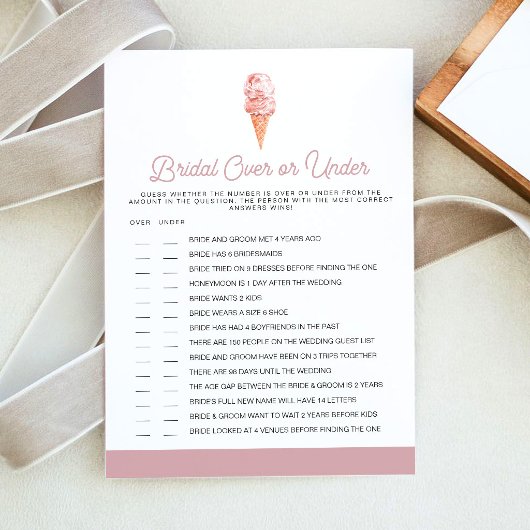 Bridal Over or Under
GUESS WHETHER THE NUMBER IS OVER OR UNDER FROM THE
AMOUNT IN THE QUESTION. THE PERSON WITH THE MOST CORRECT
ANSWERS WINS!
OVER UNDER
BRIDE AND GROOM MET 4 YEARS AGO
BRIDE HAS 6 BRIDESMAIDS
BRIDE TRIED ON 9 DRESSES BEFORE FINDING THE ONE
HONEYMOON IS 1 DAY AFTER THE WEDDING
BRIDE WANTS 2 KIDS
BRIDE WEARS A SIZE 6 SHOE
BRIDE HAS HAD 4 BOYFRIENDS IN THE PAST
THERE ARE 150 PEOPLE ON THE WEDDING GUEST LIST
BRIDE AND GROOM HAVE BEEN ON 3 TRIPS TOGETHER
THERE ARE 98 DAYS UNTIL THE WEDDING
THE AGE GAP BETWEEN THE BRIDE & GROOM IS 2 YEARS
BRIDE'S FULL NEW NAME WILL HAVE 14 LETTERS
BRIDE & GROOM WANT TO WAIT 2 YEARS BEFORE KIDS
BRIDE LOOKED AT 4 VENUES BEFORE FINDING THE ONE